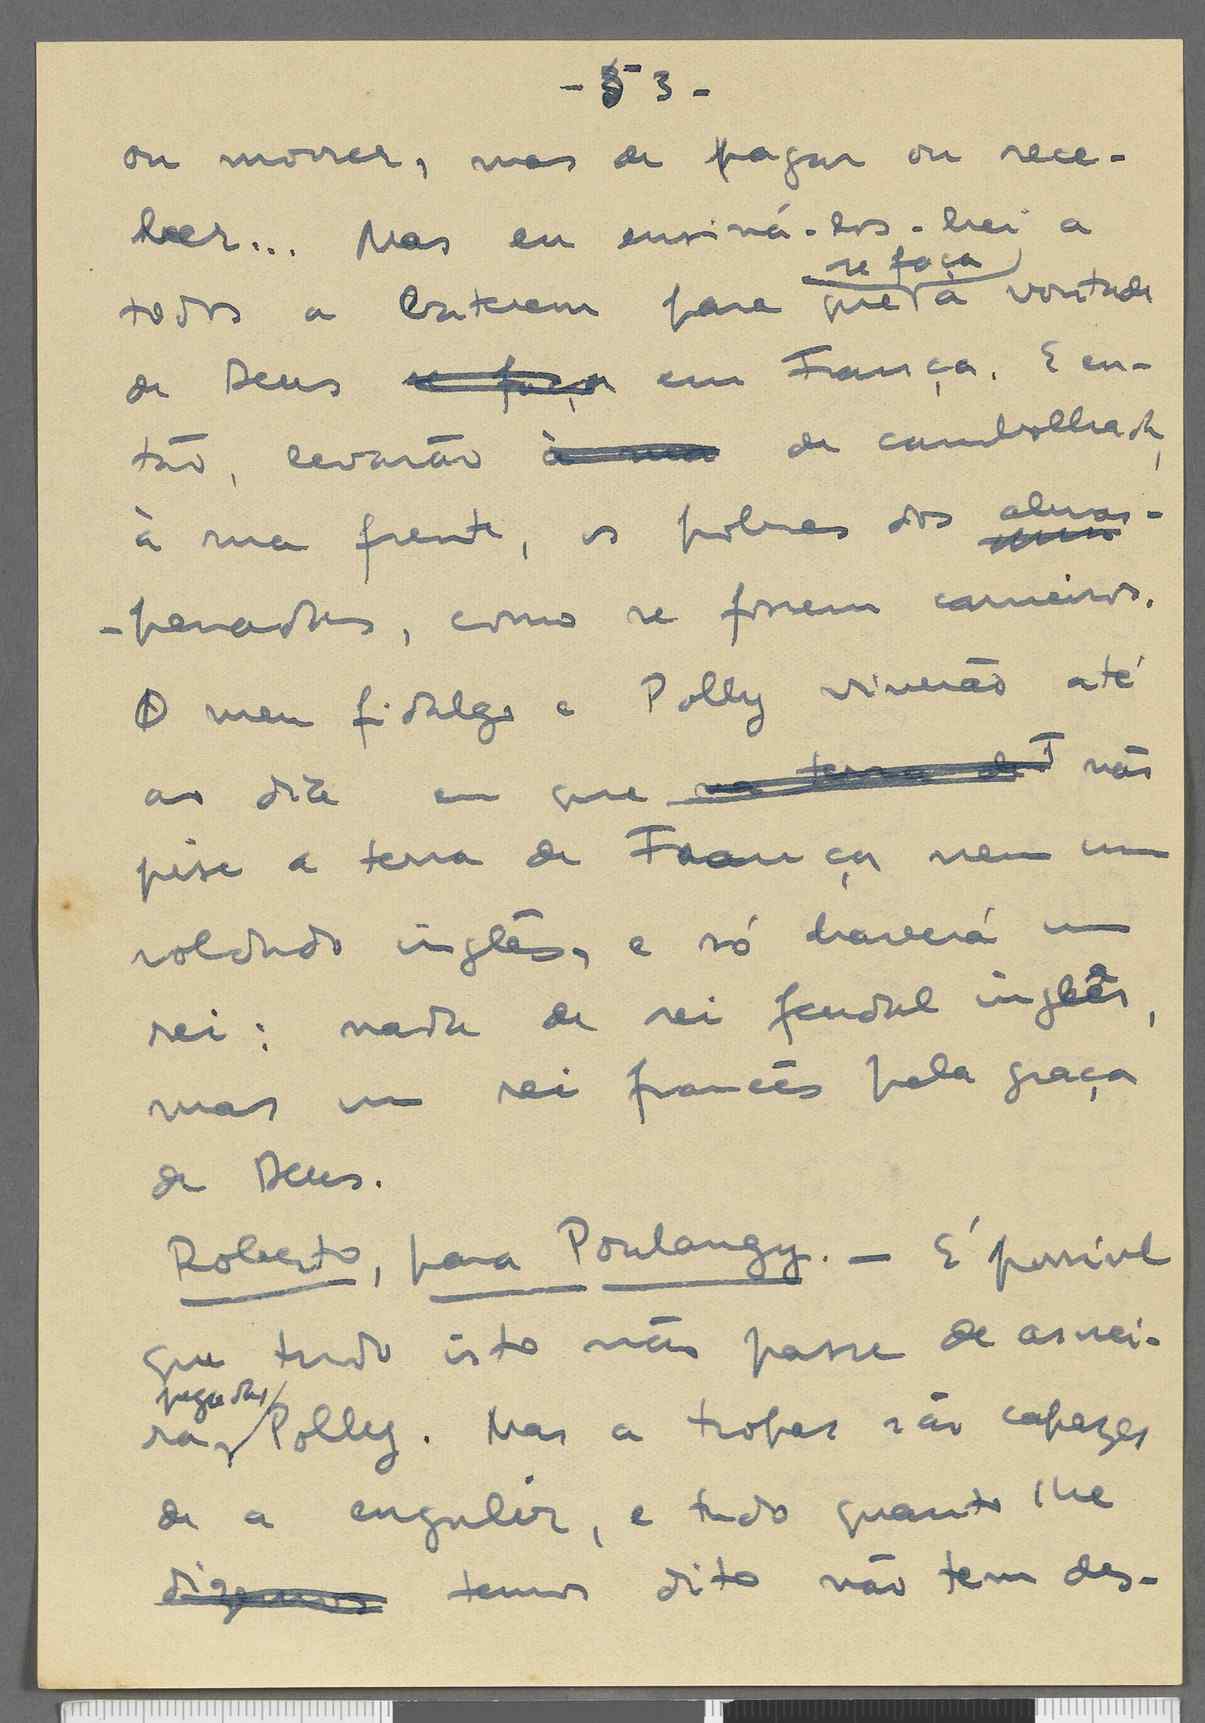 - 53 -
ou morrer, mas de pagar ou rece-
ber... Mas eu ensiná-los-hei a
se faça
todos a baterem para que a vontade
de Deus se faça em França. E en-
tão, levarão à sua de cambolhada,
à sua frente, os pobres dos almas-
-penadas, como se fossem carneiros.
O meu fidalgo e Polly viverão até
ao dia em que na terra de F não
pise a terra de França nem um
soldado inglês, e só haverá um
rei: nada de rei feudal inglês,
mas um rei francês pela graça
de Deus.
Roberto, para Poulangy. — É possível
que tudo isto não passe de asnei-
pegadas
ra, Polly. Mas a tropas são capazes
de a engulir, e tudo quanto lhe
dizemos temos dito não tem des-